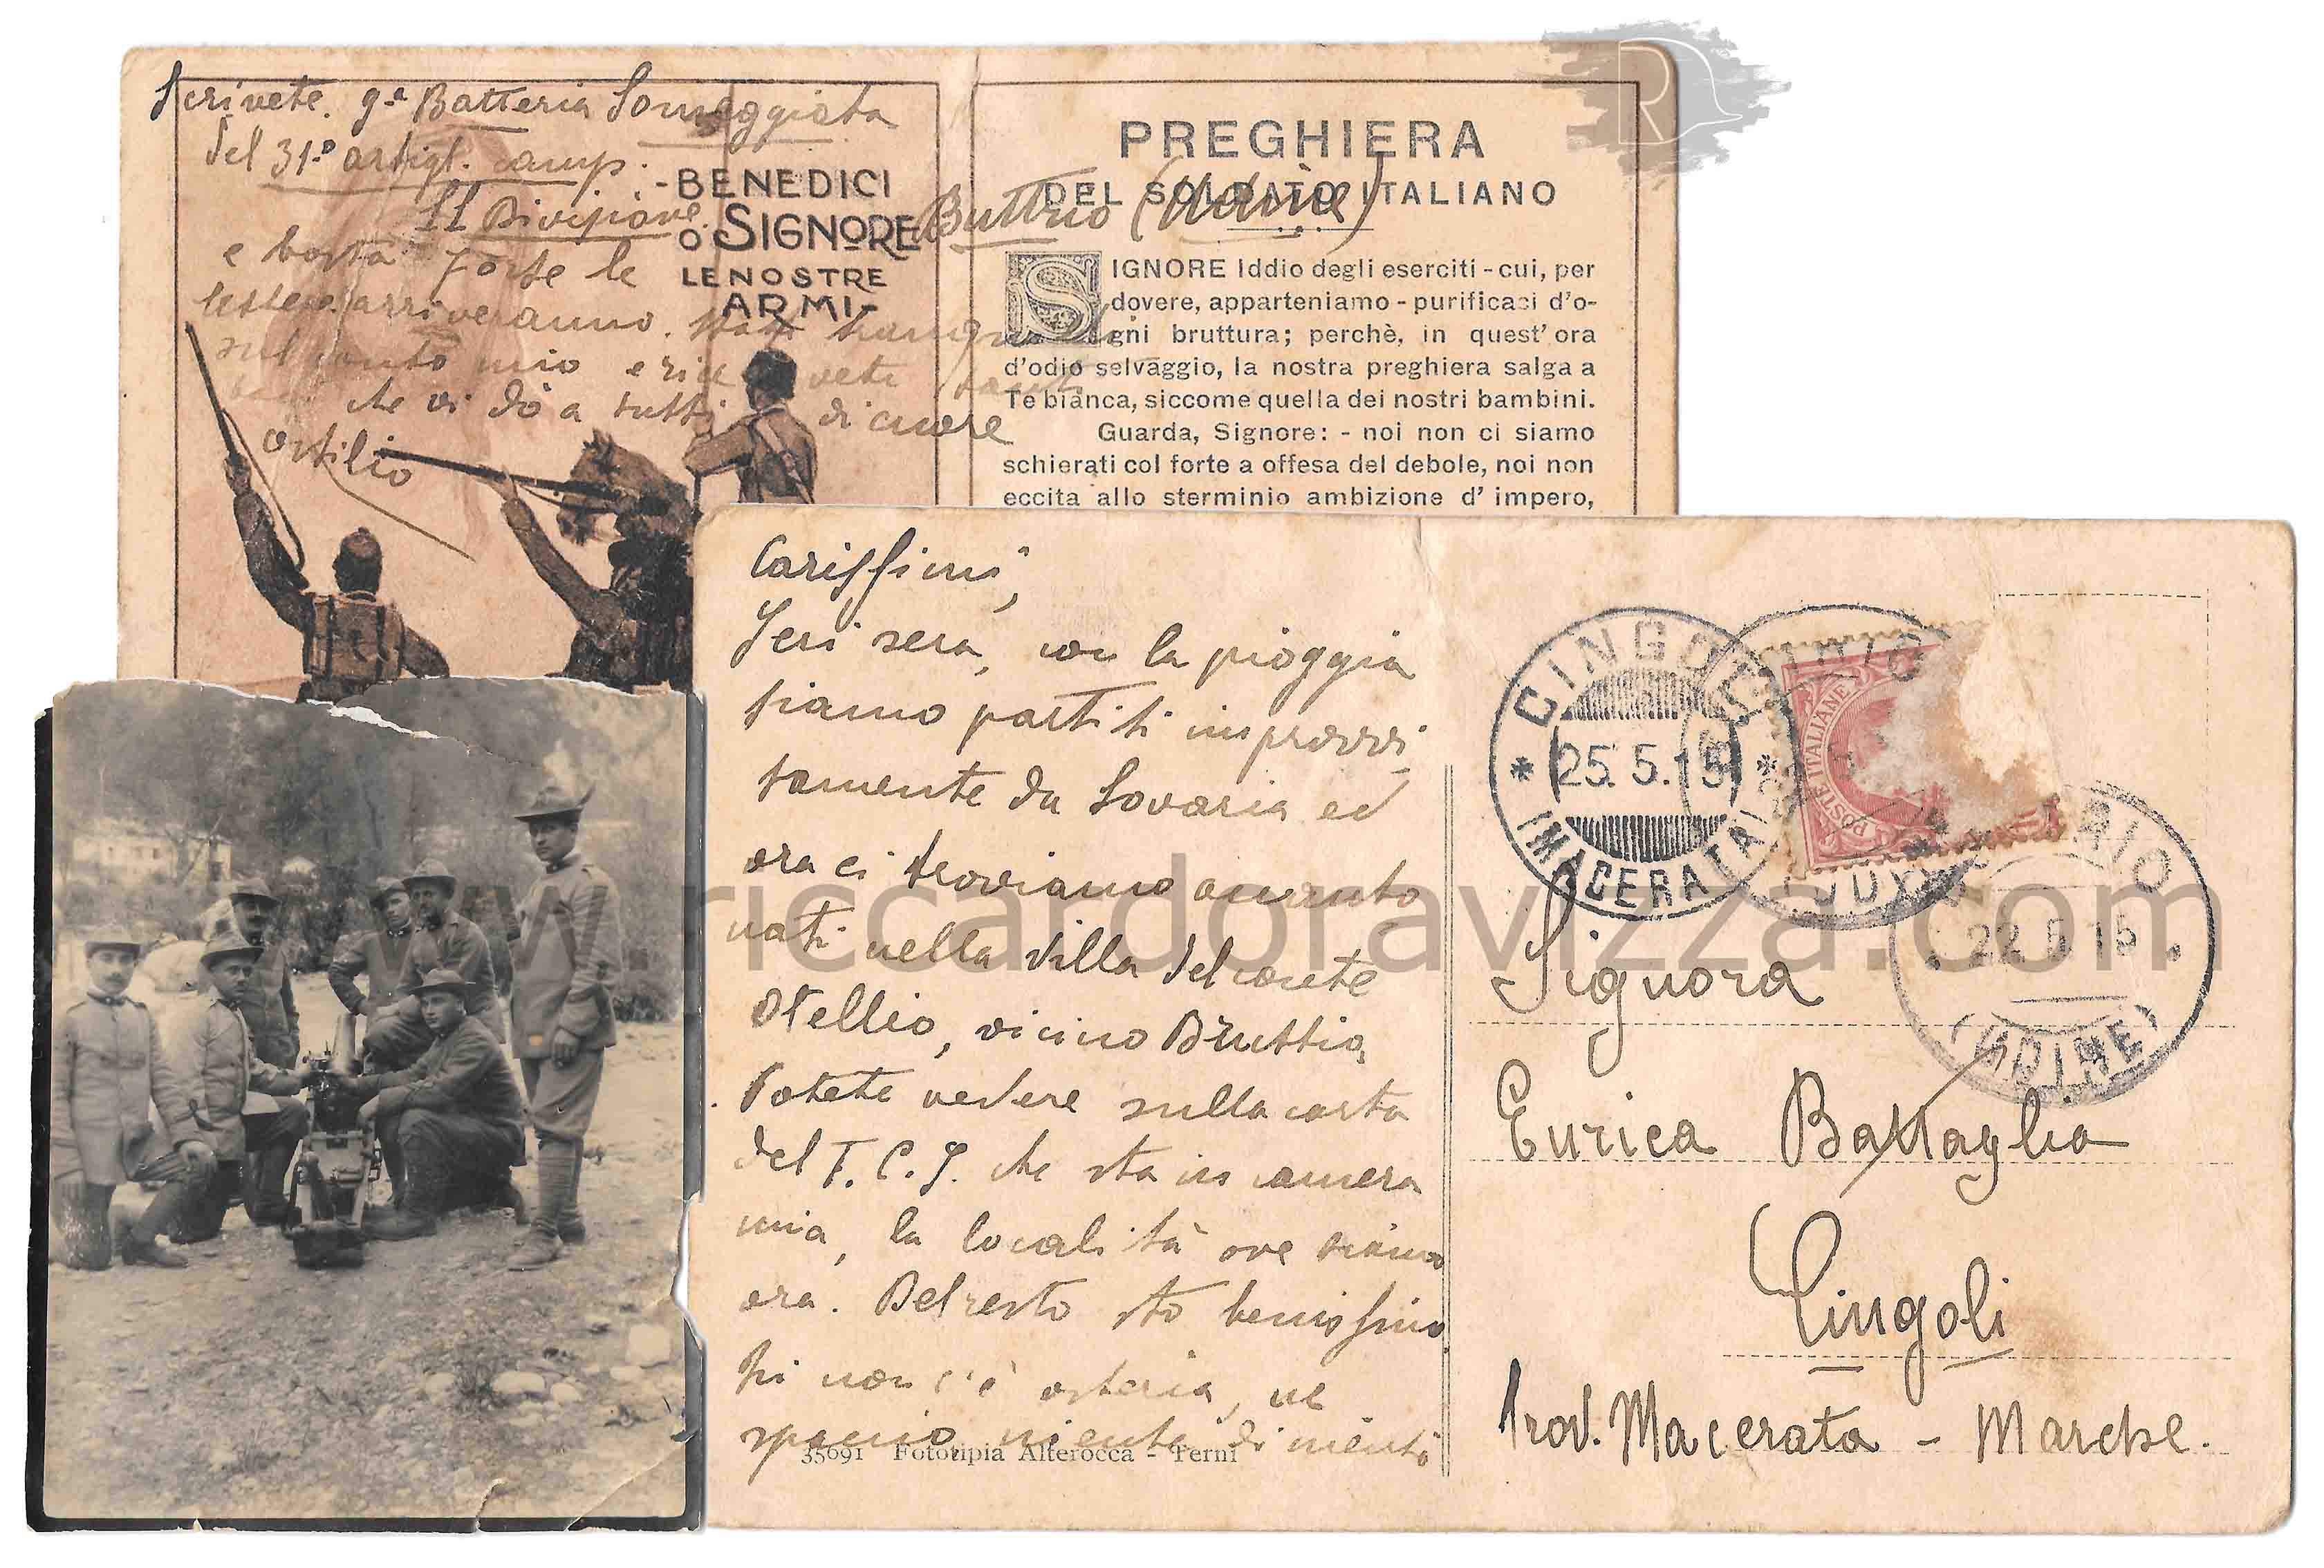 Scrivete. 9ª Batteria Someggiata
del 31º artigl. camp.
11 Divisione. Buttrio (Udine)
e basta forse le
lettere arriveranno. State tranquilli
sul conto mio e ricevete tanti
che vi dò a tutti di cuore
- BENEDICI
O SIGNORE
LE NOSTRE
ARMI -
PREGHIERA
DEL SOLDATO ITALIANO
SIGNORE Iddio degli eserciti - cui, per
dovere, apparteniamo - purificaci d'o-
gni bruttura; perchè, in quest' ora
d'odio selvaggio, la nostra preghiera salga a
Te bianca, siccome quella dei nostri bambini.
Guarda, Signore: - noi non ci siamo
schierati col forte a offesa del debole, noi non
eccita allo sterminio ambizione d' impero,
Carissimi,
Ieri sera, con la pioggia
siamo partiti improvvi
samente da Lovaria ed
ora ci troviamo accanto
nati nella villa del conte
Otellio, vicino Buttrio,
Potete vedere sulla carta
del T. C. I. che sta in camera
mia, la località ove siamo
ora. Del resto sto benissimo
non c'è osteria, ne
spaccio, niente di niente
35691 Fototipia Alterocca - Terni
CINGOLI
25.5.15
(MACERATA)
POSTE ITALIANE
22 5 15
(UDINE)
Signora
Enrica Battaglia
Cingoli
Prov. Macerata - Marche.
www.riccardoravizza.com